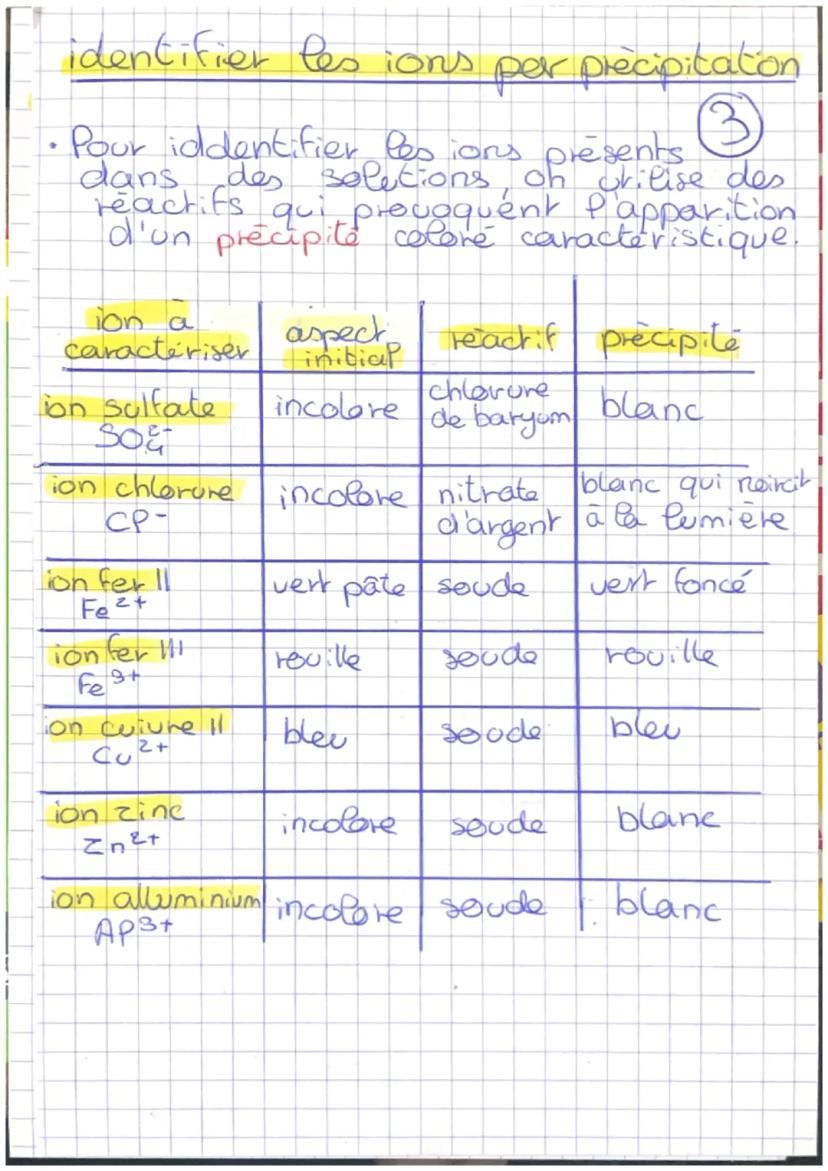 identifier les ions per précipitation
3
• Pour iddentifier les ions présents
dans des solutions, on utilise des
réactifs qui provoquent l'apparition
d'un précipité coloré caractéristique.
ion à caractériser | aspect initial | réactif | précipité
ion sulfate SO₄²⁻ | incolore | chlorure de baryum | blanc
ion chlorure Cl⁻ | incolore | nitrate d'argent | blanc qui noircit à la lumière
ion fer II Fe²⁺ | vert pâle | soude | vert foncé
ion fer III Fe³⁺ | rouille | soude | rouille
ion cuivre II Cu²⁺ | bleu | soude | bleu
ion zinc Zn²⁺ | incolore | soude | blanc
ion alluminium Al³⁺ | incolore | soude | blanc